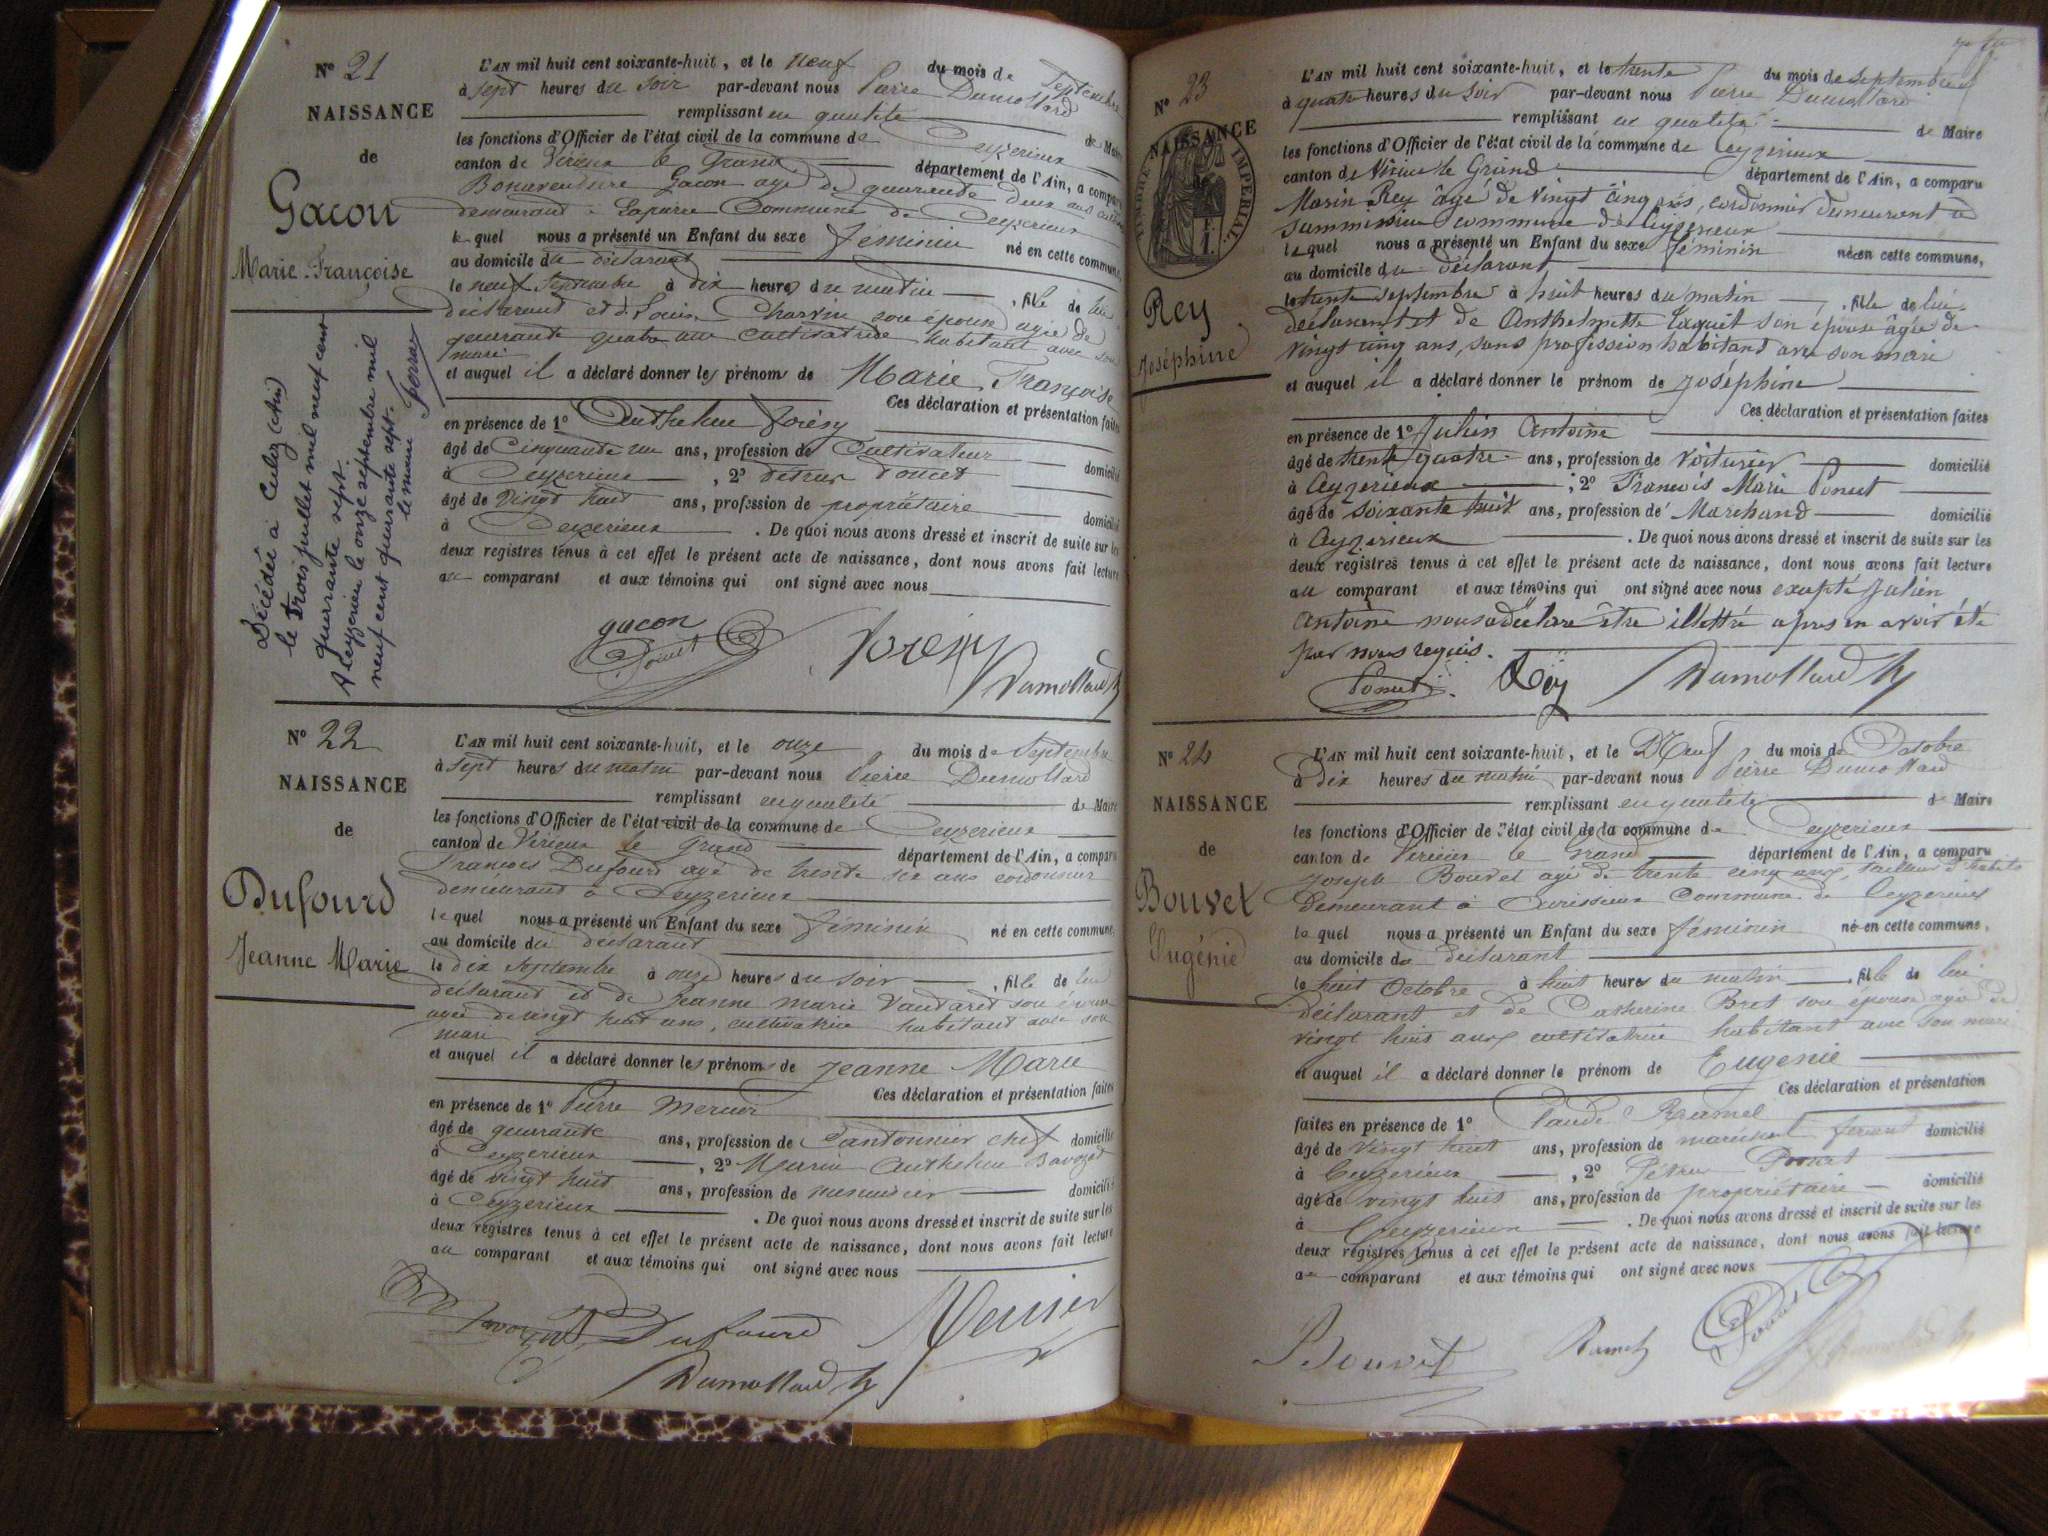 N° 21
NAISSANCE
de
Gacon
Marie-Françoise
Décédée à Culoz (Ain)
le trois juillet mil neuf cent
quarante sept.
A Ceyzérieu le onze septembre mil
neuf cent quarante sept.
le maire
L'AN mil huit cent soixante-huit, et le neuf du mois de Septembre
à sept heures du soir par-devant nous Pierre Dumollard
remplissant en qualité de Maire
les fonctions d'Officier de l'état civil de la commune de Ceyzerieux
canton de Virieux le Grand département de l'Ain, a comparu
Bonaventure Gacon agé de quarante deux ans
demeurant à Commune de Ceyzerieux
lequel nous a présenté un Enfant du sexe féminin né en cette commune,
au domicile du déclarant
le neuf Septembre à dix heures du matin, fille de lui
déclarant et de Louise Charvin son épouse agée de
quarante quatre ans cultivatrice habitant avec son
mari
et auquel il a déclaré donner les prénoms de Marie Françoise
Ces déclaration et présentation faites
en présence de 1° Anthelme Forésy
âgé de Cinquante un ans, profession de Cultivateur domicilié
à Ceyzerieux, 2° Pétrus Poncet
âgé de Vingt huit ans, profession de propriétaire domicilié
à Ceyzerieux. De quoi nous avons dressé et inscrit de suite sur les
deux registres tenus à cet effet le présent acte de naissance, dont nous avons fait lecture
au comparant et aux témoins qui ont signé avec nous
gacon
Poncet Dumollard
N° 22
NAISSANCE
de
Dufourd
Jeanne Marie
L'AN mil huit cent soixante-huit, et le onze du mois de Septembre
à sept heures du matin par-devant nous Pierre Dumollard
remplissant en qualité de Maire
les fonctions d'Officier de l'état civil de la commune de Ceyzerieux
canton de Virieux le Grand département de l'Ain, a comparu
François Dufourd agé de trente six ans cordonnier
demeurant à Ceyzerieux
lequel nous a présenté un Enfant du sexe féminin né en cette commune,
au domicile du déclarant
le dix Septembre à onze heures du soir, fille de lui
déclarant et de Jeanne Marie Vautaret son épouse
agée de vingt huit ans, cultivatrice habitant avec son
mari
et auquel il a déclaré donner les prénoms de Jeanne Marie
Ces déclaration et présentation faites
en présence de 1° Pierre Mercier
âgé de quarante ans, profession de Cantonnier chef domicilié
à Ceyzerieux, 2° Marin Anthelme
âgé de vingt huit ans, profession de menuisier domicilié
à Ceyzerieux. De quoi nous avons dressé et inscrit de suite sur les
deux registres tenus à cet effet le présent acte de naissance, dont nous avons fait lecture
au comparant et aux témoins qui ont signé avec nous
Dufourd Mercier
Dumollard
N° 23
NAISSANCE
TIMBRE IMPERIAL
Rey
Joséphine
L'AN mil huit cent soixante-huit, et le trente du mois de septembre
à quatre heures du soir par-devant nous Pierre Dumollard
remplissant en qualité de Maire
les fonctions d'Officier de l'état civil de la commune de Ceyzerieux
canton de Virieu le Grand département de l'Ain, a comparu
Marin Rey âgé de vingt cinq ans, cordonnier demeurant à
commune de Ceyzerieux
lequel nous a présenté un Enfant du sexe féminin né en cette commune,
au domicile du déclarant
le trente septembre à huit heures du matin, fille de lui
déclarant et de Anthelmette Laquit son épouse âgée de
vingt cinq ans, sans profession habitant avec son mari
et auquel il a déclaré donner le prénom de Joséphine
Ces déclaration et présentation faites
en présence de 1° Julien Antoine
âgé de trente quatre ans, profession de Voiturier domicilié
à Ceyzerieux, 2° François Marie Poncet
âgé de soixante huit ans, profession de Marchand domicilié
à Ceyzerieux. De quoi nous avons dressé et inscrit de suite sur les
deux registres tenus à cet effet le présent acte de naissance, dont nous avons fait lecture
au comparant et aux témoins qui ont signé avec nous excepté Julien
Antoine nous a déclaré être illettré après en avoir été
par nous requis.
Poncet Rey Dumollard
N° 24
NAISSANCE
de
Bouvet
Eugénie
L'AN mil huit cent soixante-huit, et le Neuf du mois de Octobre
à dix heures du matin par-devant nous Pierre Dumollard
remplissant en qualité de Maire
les fonctions d'Officier de l'état civil de la commune de Ceyzerieux
canton de Virieux le Grand département de l'Ain, a comparu
Joseph Bouvet agé de trente cinq ans, tailleur d'habits
demeurant à Avrissieux Commune de Ceyzerieux
lequel nous a présenté un Enfant du sexe féminin né en cette commune,
au domicile du déclarant
le huit Octobre à huit heures du matin, fille de lui
déclarant et de Catherine Bret son épouse agée de
vingt huit ans cultivatrice habitant avec son mari
et auquel il a déclaré donner le prénom de Eugenie
Ces déclaration et présentation
faites en présence de 1° Claude Ramel
âgé de vingt huit ans, profession de marechal ferrant domicilié
à Ceyzerieux, 2° Pétrus Poncet
âgé de vingt huit ans, profession de propriétaire domicilié
à Ceyzerieux. De quoi nous avons dressé et inscrit de suite sur les
deux registres tenus à cet effet le présent acte de naissance, dont nous avons fait lecture
au comparant et aux témoins qui ont signé avec nous
Bouvet Ramel Poncet